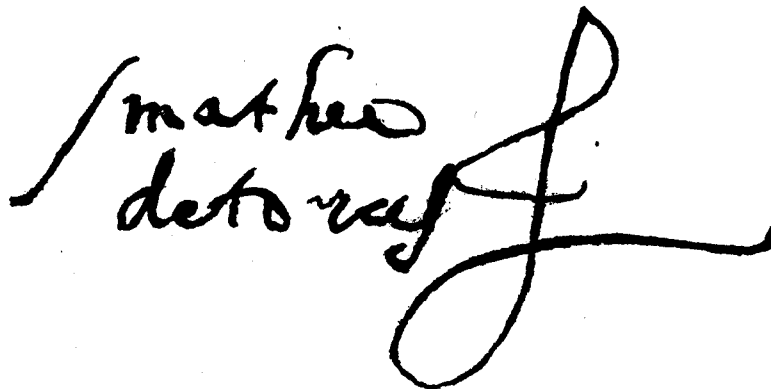 matheo
detorres